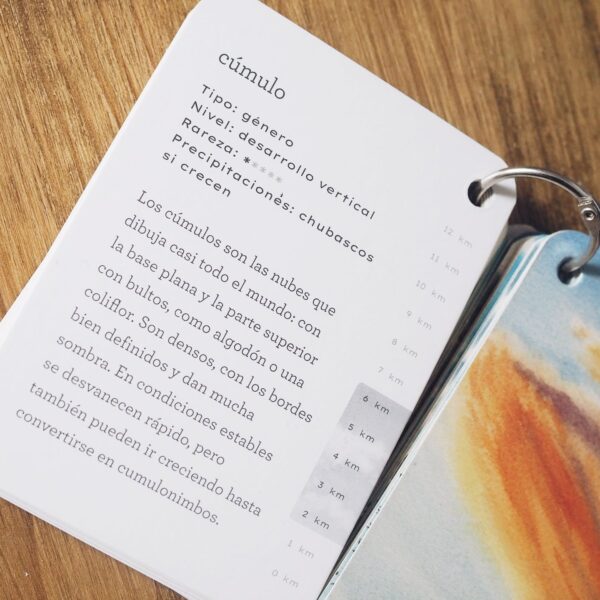 cúmulo
Tipo: género
Nivel: desarrollo vertical
Rareza: *****
Precipitaciones: chubascos
si crecen
Los cúmulos son las nubes que
dibuja casi todo el mundo: con
la base plana y la parte superior
con bultos, como algodón o una
coliflor. Son densos, con los bordes
bien definidos y dan mucha
sombra. En condiciones estables
se desvanecen rápido, pero
también pueden ir creciendo hasta
convertirse en cumulonimbos.
12 km
11 km
10 km
9 km
8 km
7 km
6 km
5 km
4 km
3 km
2 km
1 km
0 km